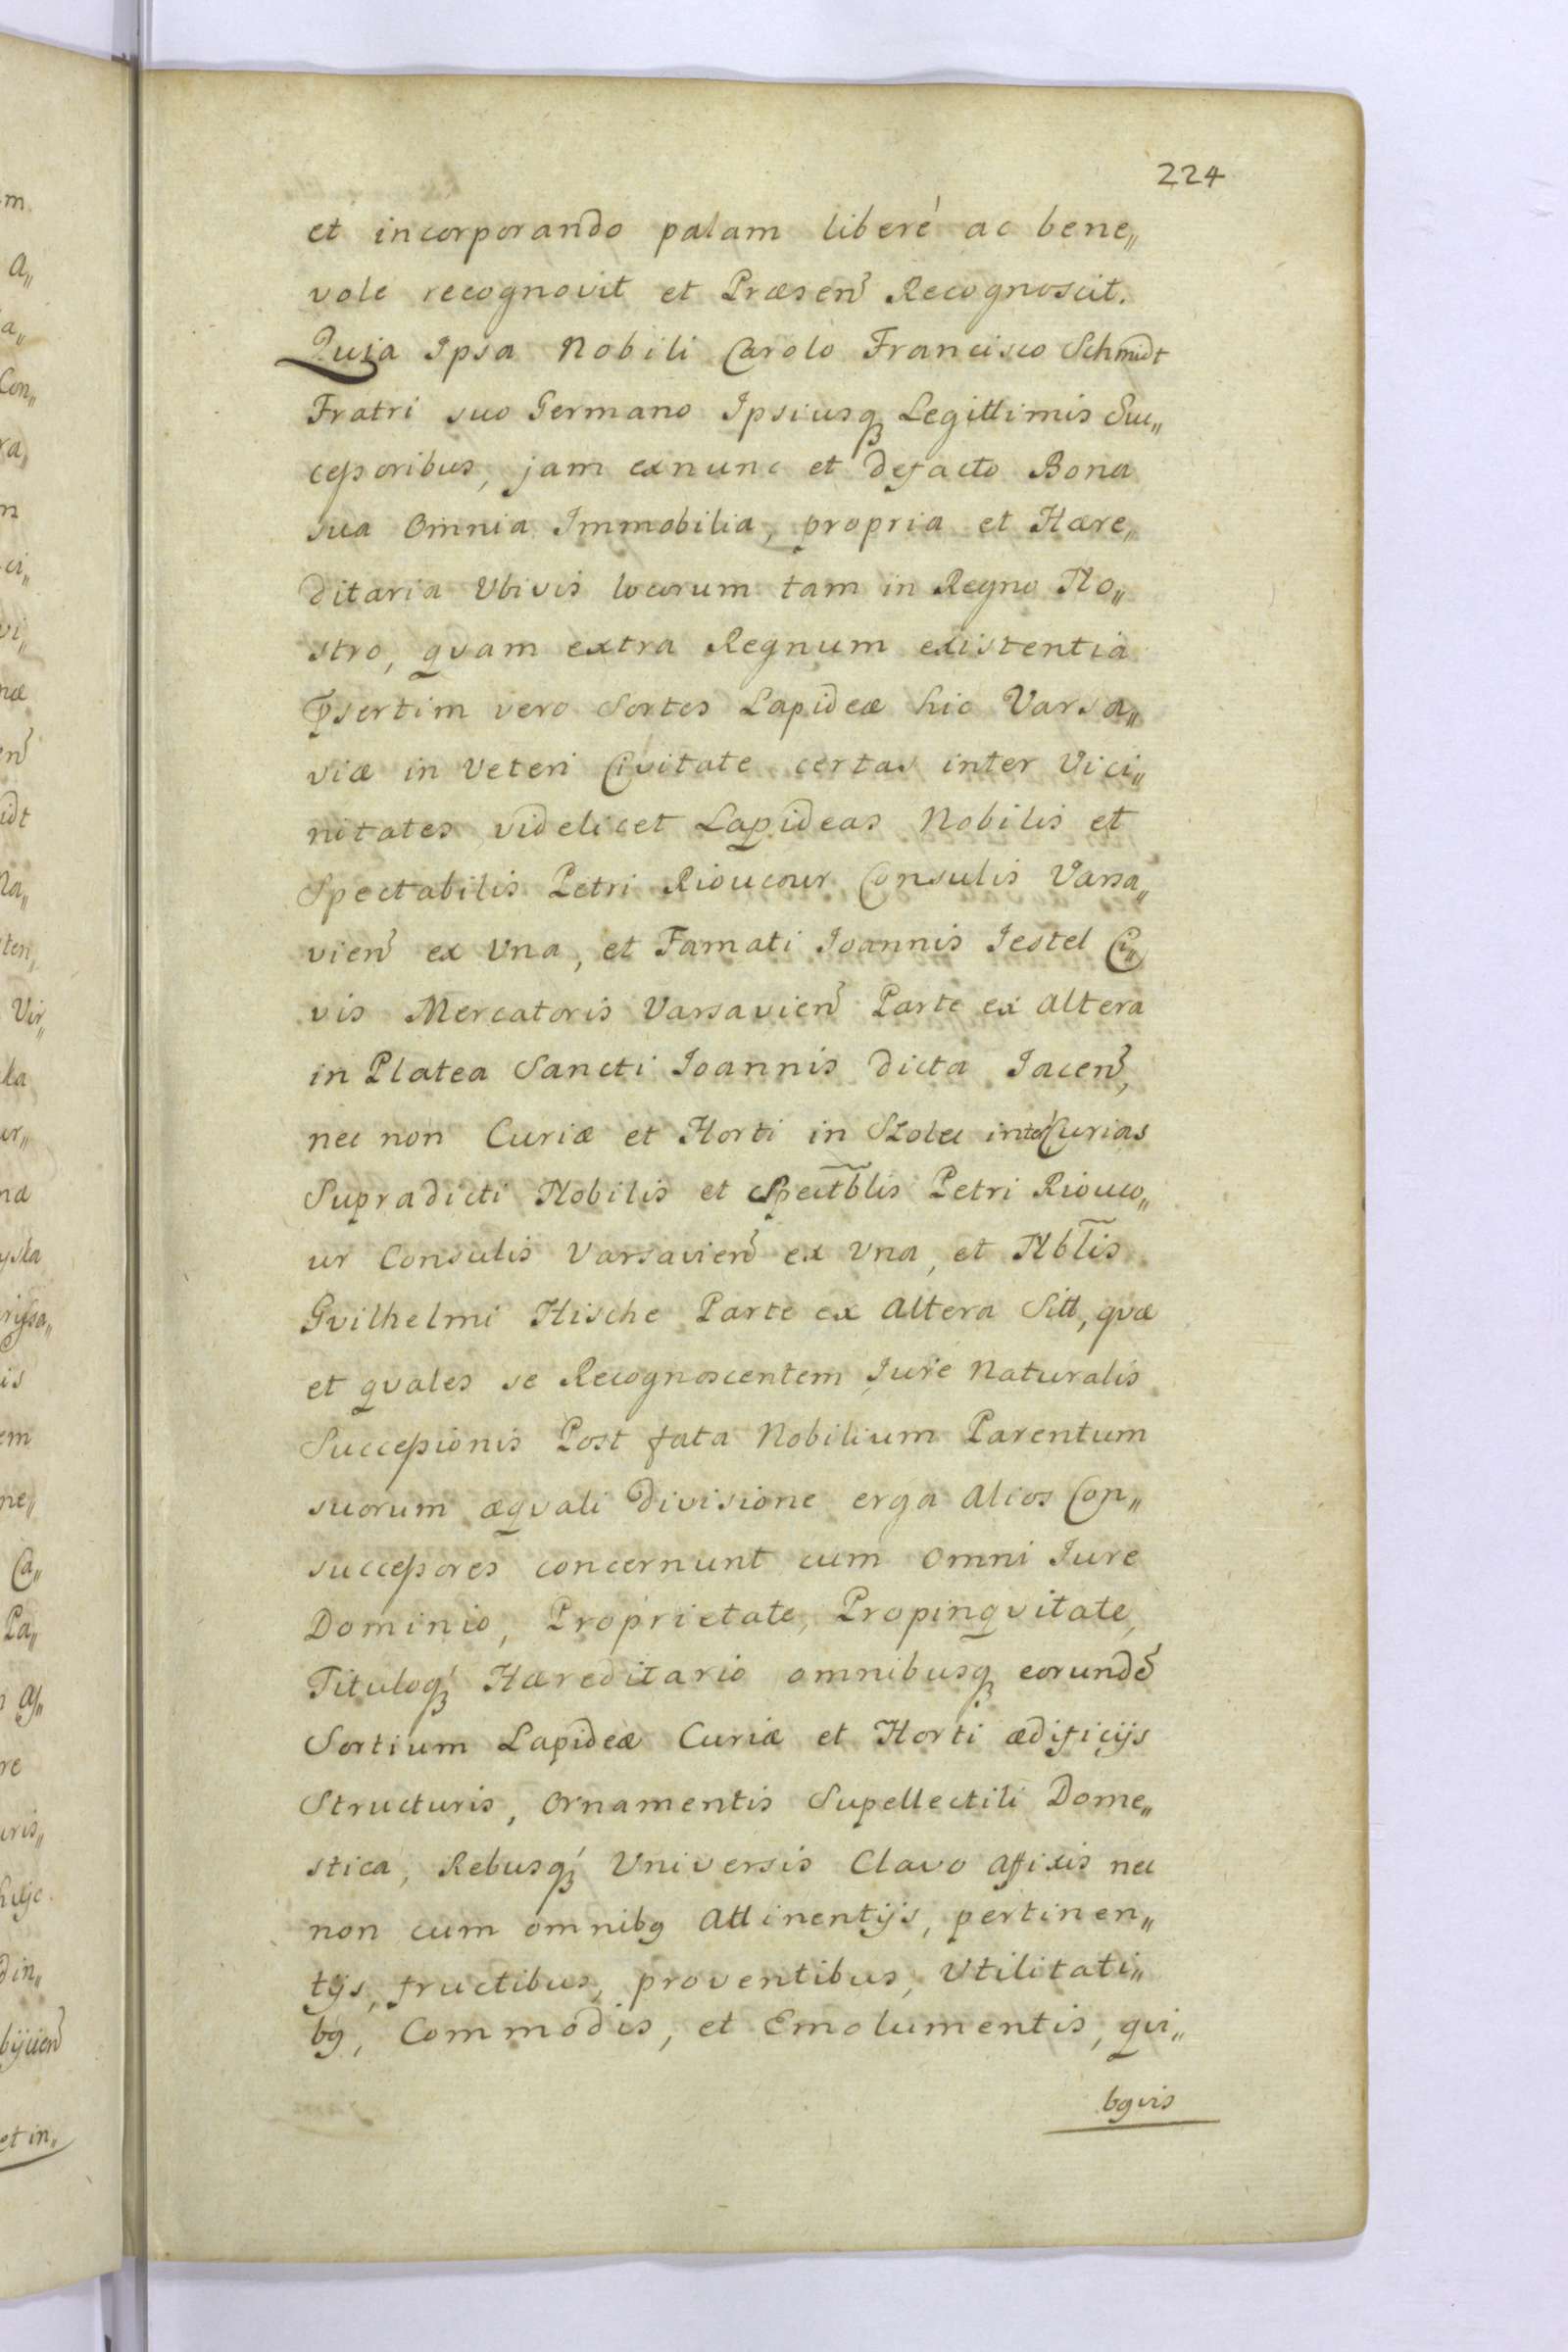 224
et incorporando palam liberé ac bene„
vole recognovit et Præsen̄ Recognoscit.
Quia Ipsa Nobili Carolo Francisco Schmidt
Fratri suo Germano Ipsiusq; Legittimis Suc„
ceſsoribus, jam exnunc et defacto Bona
sua Omnia Immobilia, propria et Hære„
ditaria Ubivis locorum tam in Regno No„
stro, qvam extra Regnum existentia
p̄sertim vero Sortes Lapideæ hic Varsa„
viæ in Veteri Civitate certas inter Vici„
nitates videlicet Lapideas Nobilis et
Spectabilis Petri Rioucour Consulis Varsa„
vien̄ ex Una, et Famati Ioannis Jestel Ci„
vis Mercatoris Varsavien̄ Parte ex Altera
in Platea Sancti Ioannis dicta Jacen̄,
nec non Curiæ et Horti in Szolec inter Curias
Supradicti Nobilis et Spectb̄lis Petri Riouco„
ur Consulis Varsavien̄ ex Una, et Nbl̄is
Gvilhelmi Hische Parte ex Altera Sitt, qvæ
et qvales se Recognoscentem Jure Naturalis
Succeſsionis Post fata Nobilium Parentum
suorum æqvali Divisione erga Alios Con„
succeſsores concernunt cum Omni Iure
Dominio, Proprietate, Propinqvitate,
Tituloq; Hæreditario omnibusq; eorundē
Sortium Lapideæ Curiæ et Horti ædificijs
Structuris, Ornamentis Supellectili Dome„
stica, Rebusq; Universis Clavo Affixis nec
non cum omnibq Attinentijs, pertinen„
tijs, fructibus, proventibus, Utilitati„
bq, Commodis, et Emolumentis, qvi„
bqvis